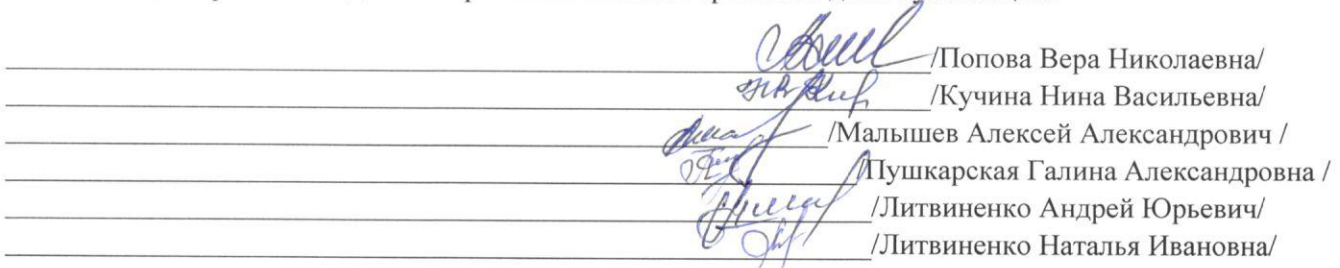 /Попова Вера Николаевна/
/Кучина Нина Васильевна/
/Малышев Алексей Александрович /
/Пушкарская Галина Александровна /
/Литвиненко Андрей Юрьевич/
/Литвиненко Наталья Ивановна/